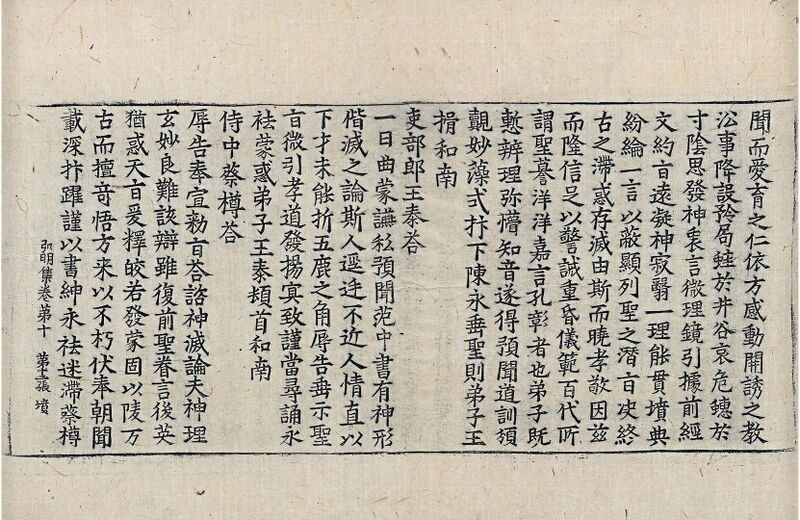 聞而愛育之仁依方感動開誘之教
訟事降誤矜局蛙於井谷哀危鏓於
寸陰思發神衷言微理鏡引據前經
文約旨遠凝神寂翳一理能貫墳典
紛綸一言以蔽顯列聖之潛旨決終
古之滯惑存滅由斯而曉孝敬因茲
而隆信足以警誡重昏儀範百代所
謂聖謩洋洋嘉言孔彰者也弟子既
慙辨理弥懵知音遂得預聞道訓頒
覿妙藻式抃下陳永垂聖則弟子王
揖和南
吏部郎王泰荅
一日曲蒙讌私預聞范中書有神形
偕滅之論斯人逕迋不近人情直以
下才未能折五鹿之角辱告垂示聖
旨微引孝道發揚㝠致謹當尋誦永
袪蒙惑弟子王泰頓首和南
侍中蔡樽荅
辱告奉宣勑旨荅諮神滅論夫神理
玄妙良難該辯雖復前聖眷言後英
猶惑天旨爰釋皎若發蒙固以陵万
古而擅竒悟方来以不朽伏奉朝聞
載深抃躍謹以書紳永袪迷滯蔡樽
弘明集卷第十 第十二張 墳